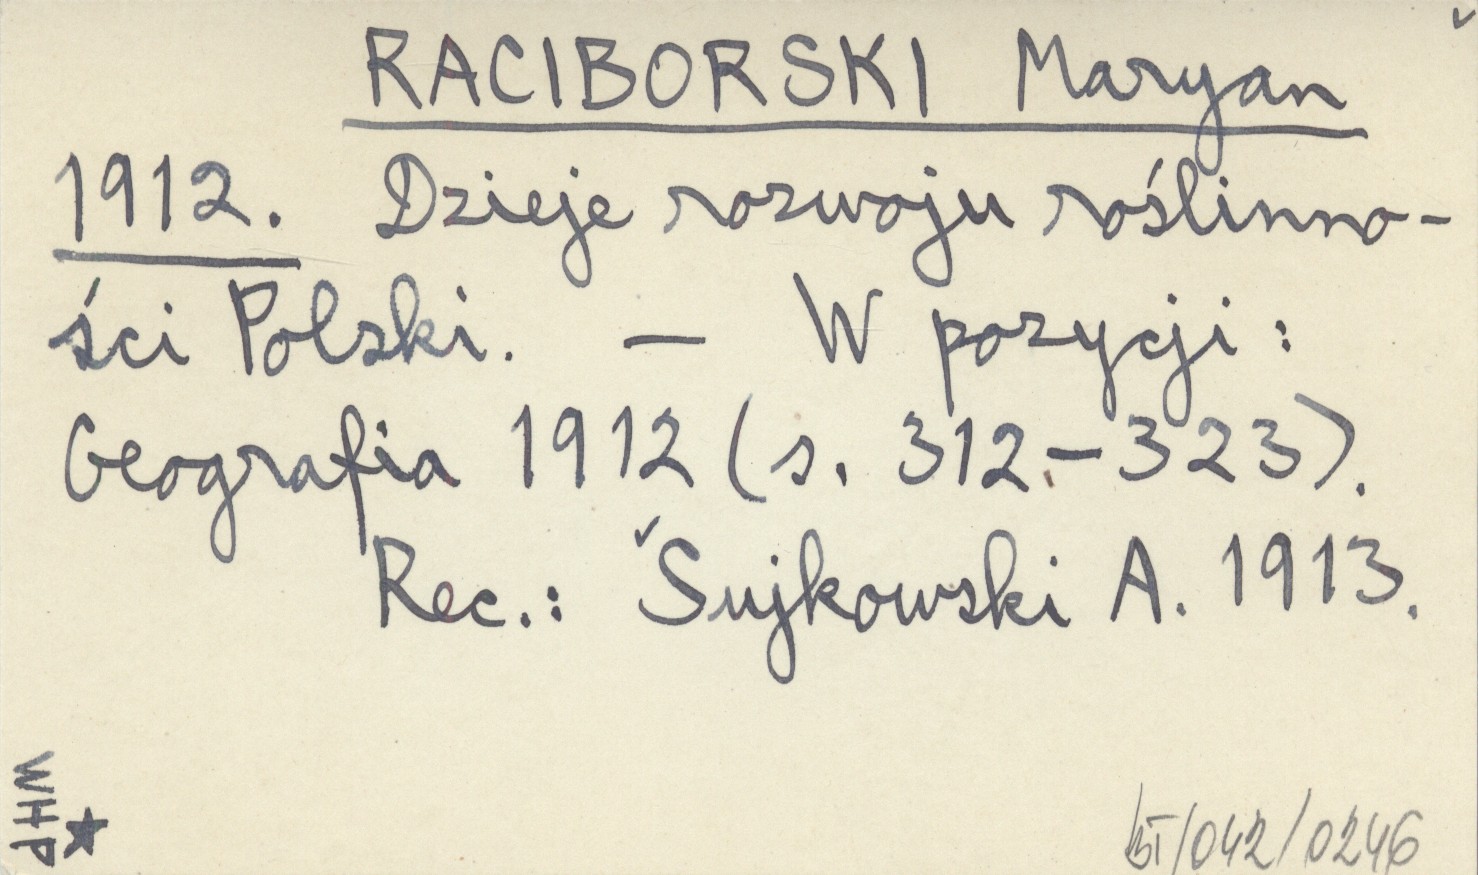 RACIBORSKI Maryan
1912. Dzieje rozwoju roślinno-
ści Polski. — W pozycji:
Geografia 1912 (s. 312-323).
Rec.: Sujkowski A. 1913.
WHP
/042/0246